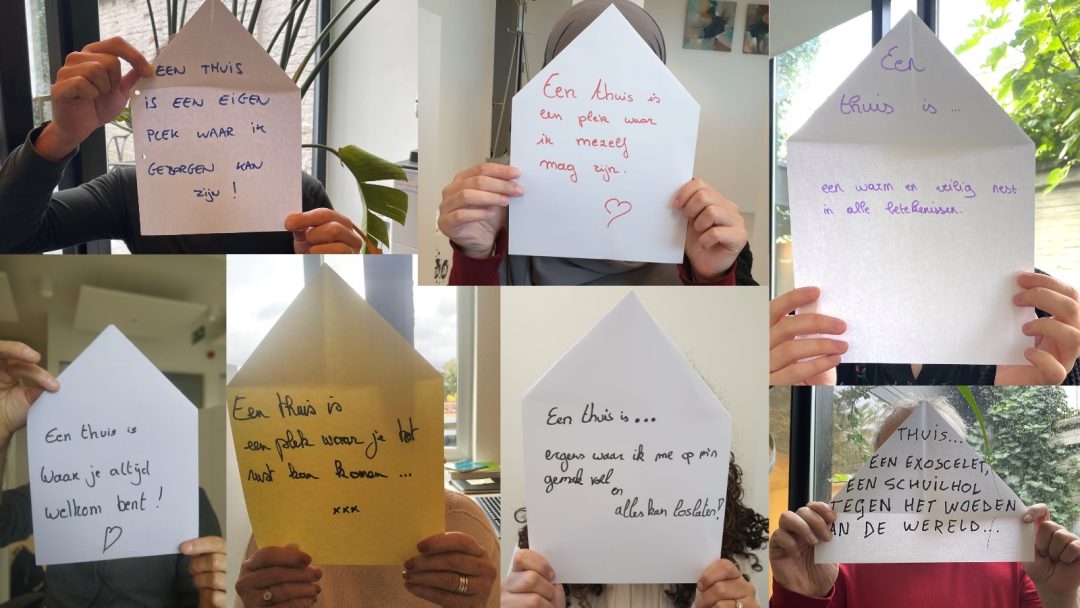 EEN THUIS
IS EEN EIGEN
PLEK WAAR IK
GEBORGEN KAN
ZIJN!
Een thuis is
een plek waar
ik mezelf
mag zijn.
Een
thuis is ...
een warm en veilig nest
in alle betekenissen.
Een thuis is
waar je altijd
welkom bent!
Een thuis is
een plek waar je tot
rust kan komen ...
xxx
Een thuis is...
ergens waar ik me op m'n
gemak voel
en
alles kan loslaten!
THUIS...
EEN EXOSCELET,
EEN SCHUILHOL
TEGEN HET WOEDEN
VAN DE WERELD...